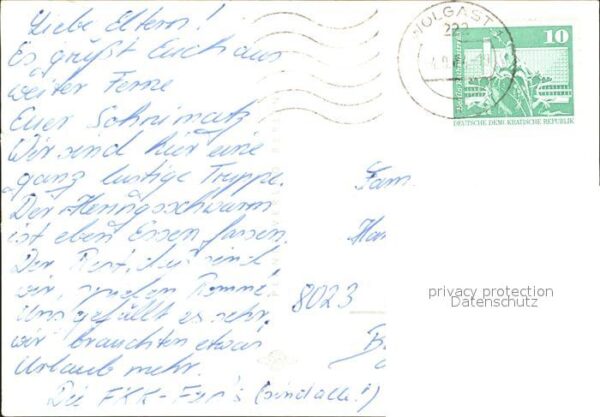 Liebe Eltern!
Es grüßt Euch aus
weiter Ferne
Euer
Wir sind hier eine
ganz lustige Truppe.
Der
ist eben Essen fassen.
Der Rest, das sind
wir, spielen Rommé.
Uns gefällt es sehr,
wir brauchten etwas
Urlaub mehr.
Die FKK-Fan's (sind alle!)
WOLGAST 1
222
10
DEUTSCHE DEMOKRATISCHE REPUBLIK
Fam.
8023
privacy protection
Datenschutz